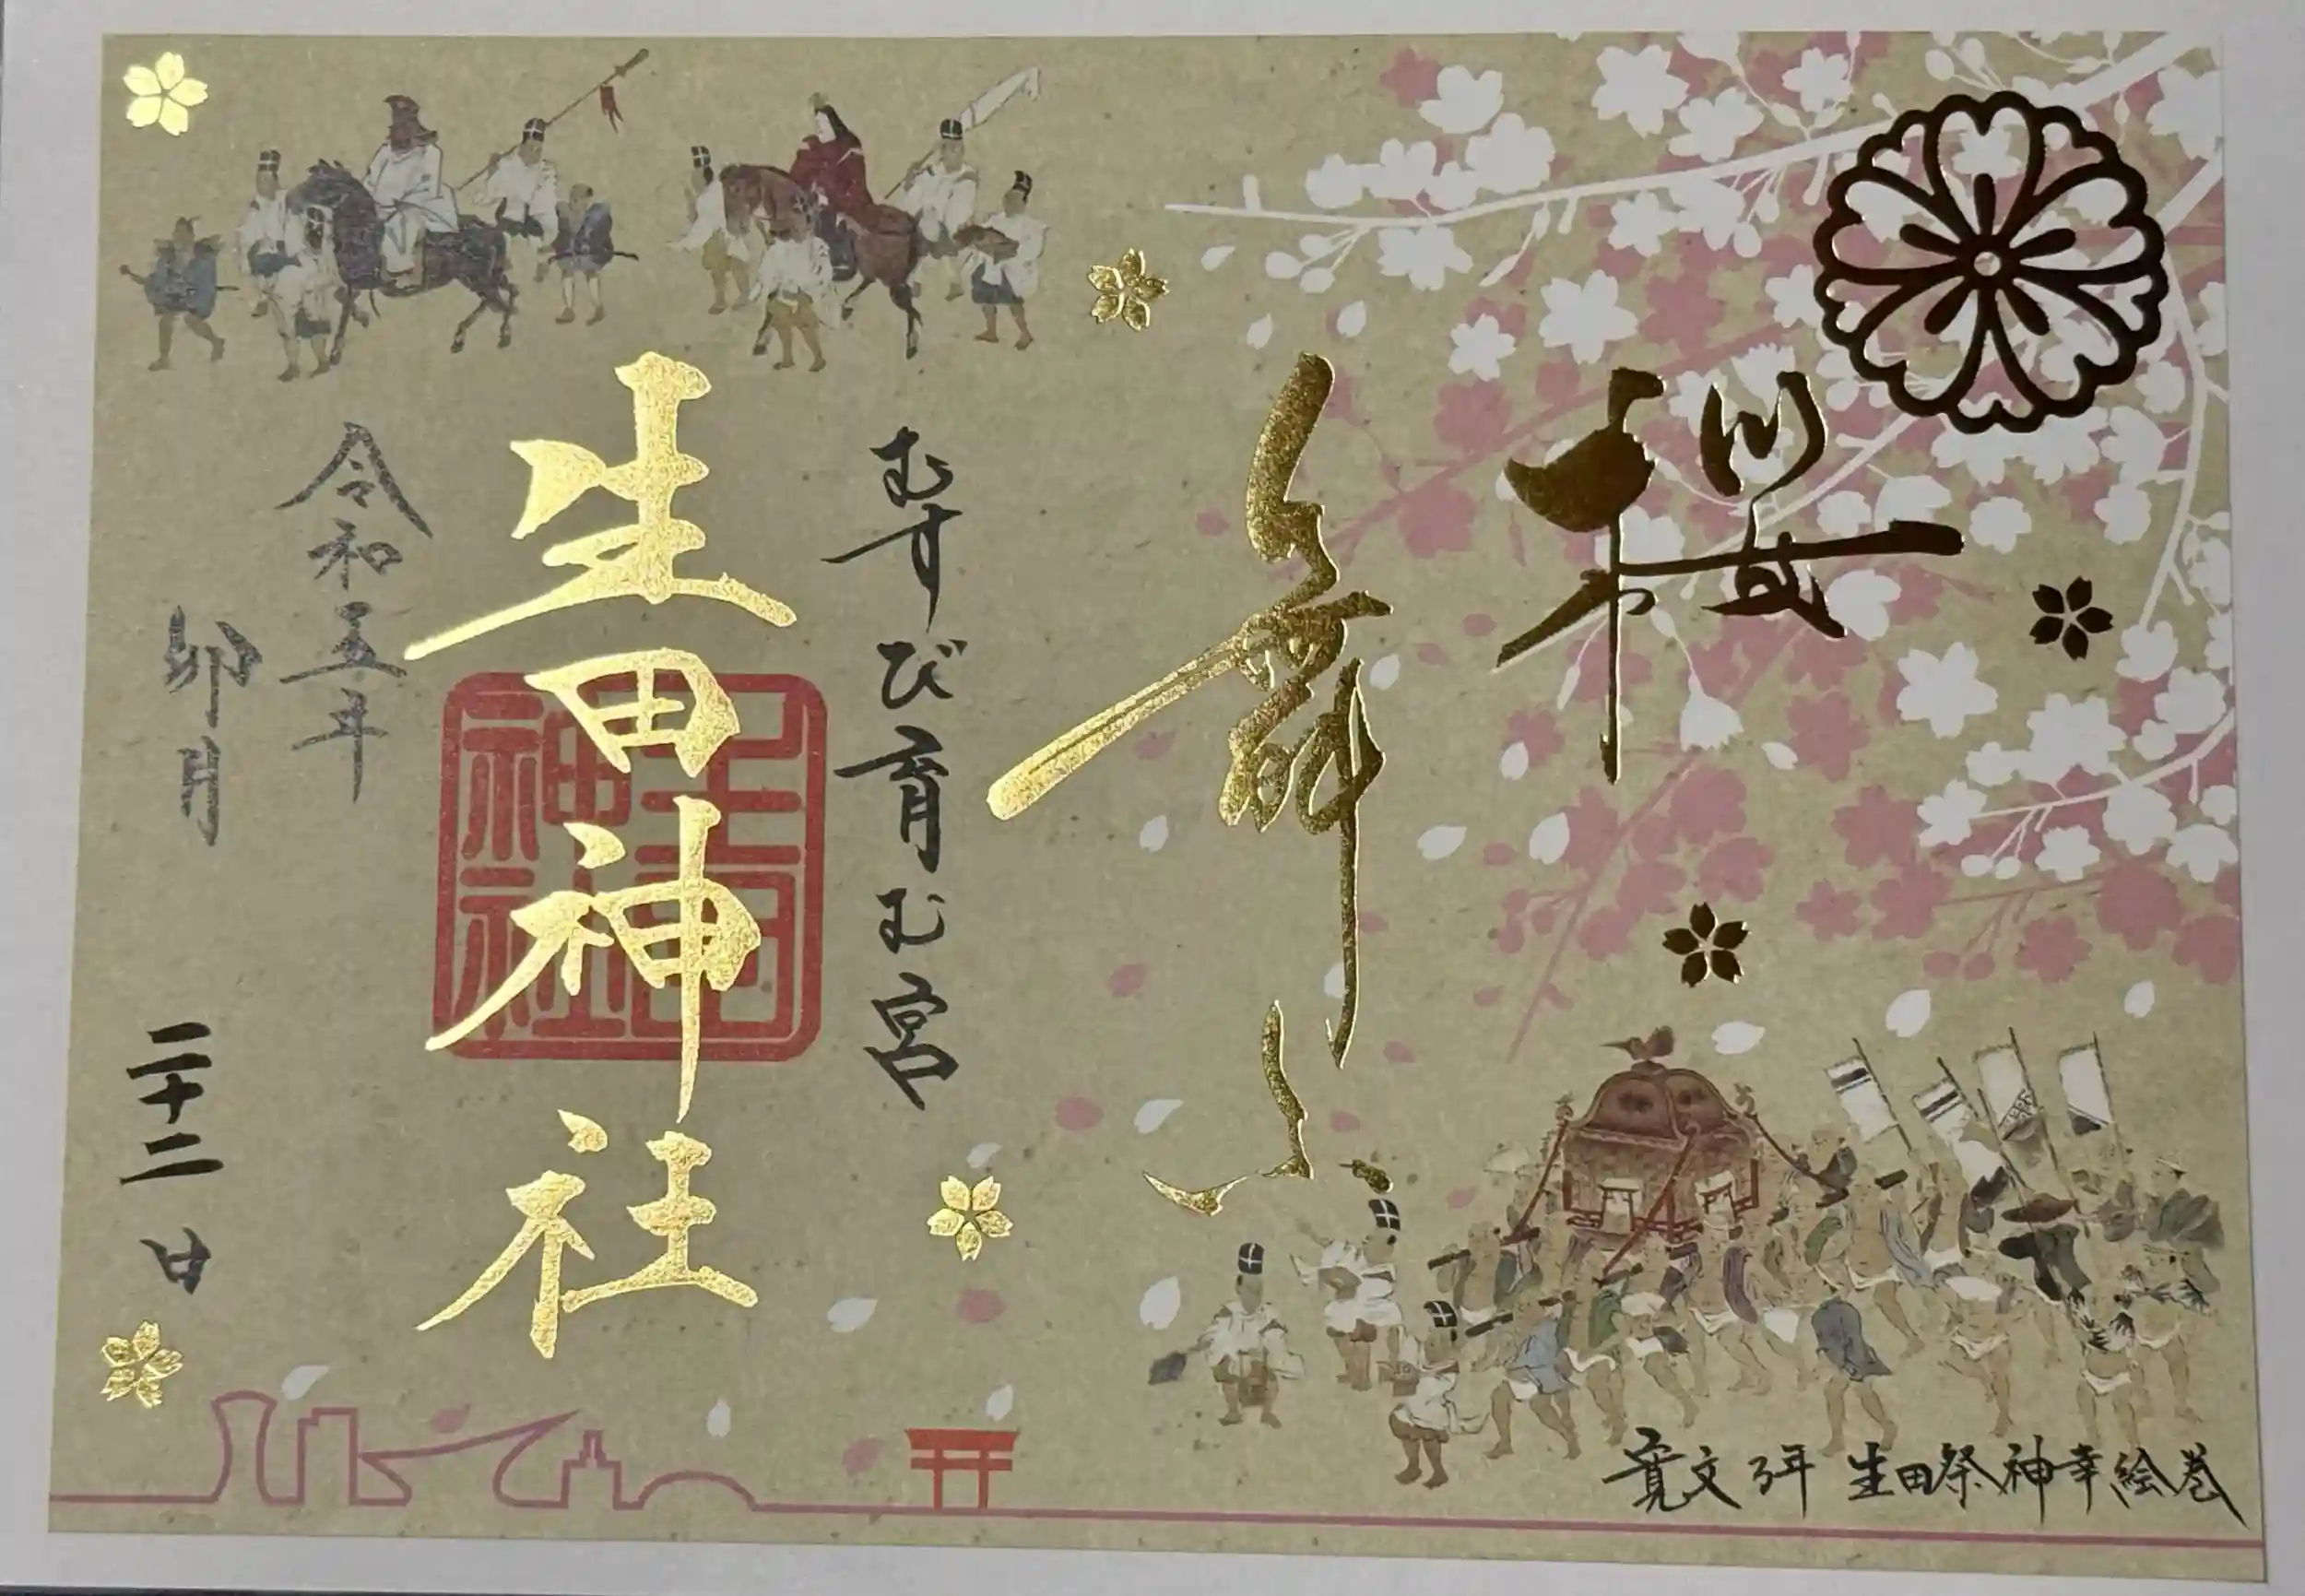 桜
舞ふ
むすび育む宮
生田神社
生田神社
令和五年
卯月
二十二日
寛文 年 生田祭神幸絵巻